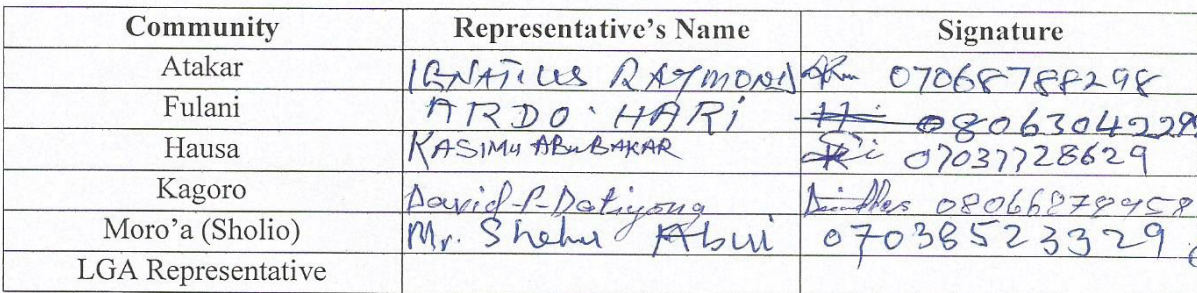 Community Representative's Name Signature
Atakar IGNATIUS RAYMOND 07068788298
Fulani ARDO. HARI 0806304229
Hausa KASIMU ABUBAKAR 07037728629
Kagoro David P. 08066878958
Moro'a (Sholio) Mr. Shehu Abui 07038523329
LGA Representative